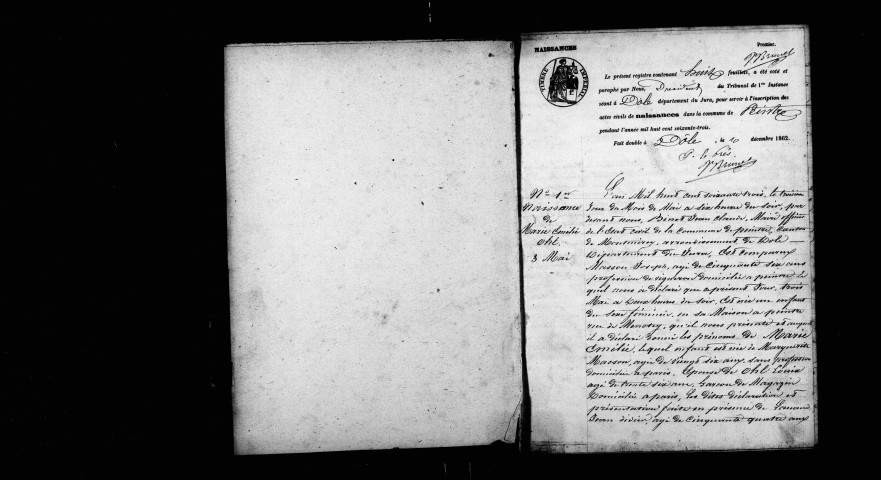 NAISSANCES
Premier.
TIMBRE IMPERIAL
Le présent registre contenant huit feuillets, a été coté et
paraphé par Nous, Président du Tribunal de 1re Instance
séant à Dole département du Jura, pour servir à l'inscription des
actes civils de naissances dans la commune de Peintre
pendant l'année mil huit cent soixante-trois.
Fait double à Dôle, le 10 décembre 1862.
N° 1er
Naissance
de
Marie Emélie
Ohl.
3 Mai
L'an Mil huit cent soixante trois, le troisième
jour du Mois de Mai a six heure du soir, par
devant nous, Binet Jean Claude, Maire officier
de l'Etat civil de la Commune de peintre, Canton
de Montmirey, arrondissement de Dole
Département du Jura, Est comparu
Masson Joseph, agé de Cinquante six ans
profession de vigneron domicilié a peintre le
quel nous a déclaré que a présent Jour, trois
Mai a deux heures du soir, est née un enfant
du sexe féminin, en sa Maison a peintre
rue de Menotey, qu'il nous présente et auquel
il a déclaré donné les prénoms de Marie
Emélie, lequel enfant est née de Marguerite
Masson, agée de vingt six ans, sans profession
domiciliée a paris, Epouse de Ohl Louis
agé de trente six ans, Garçon de Magazin
Domicilié a paris, les dites déclaration et
présentation faite en présence de
Jean agé de Cinquante quatre ans